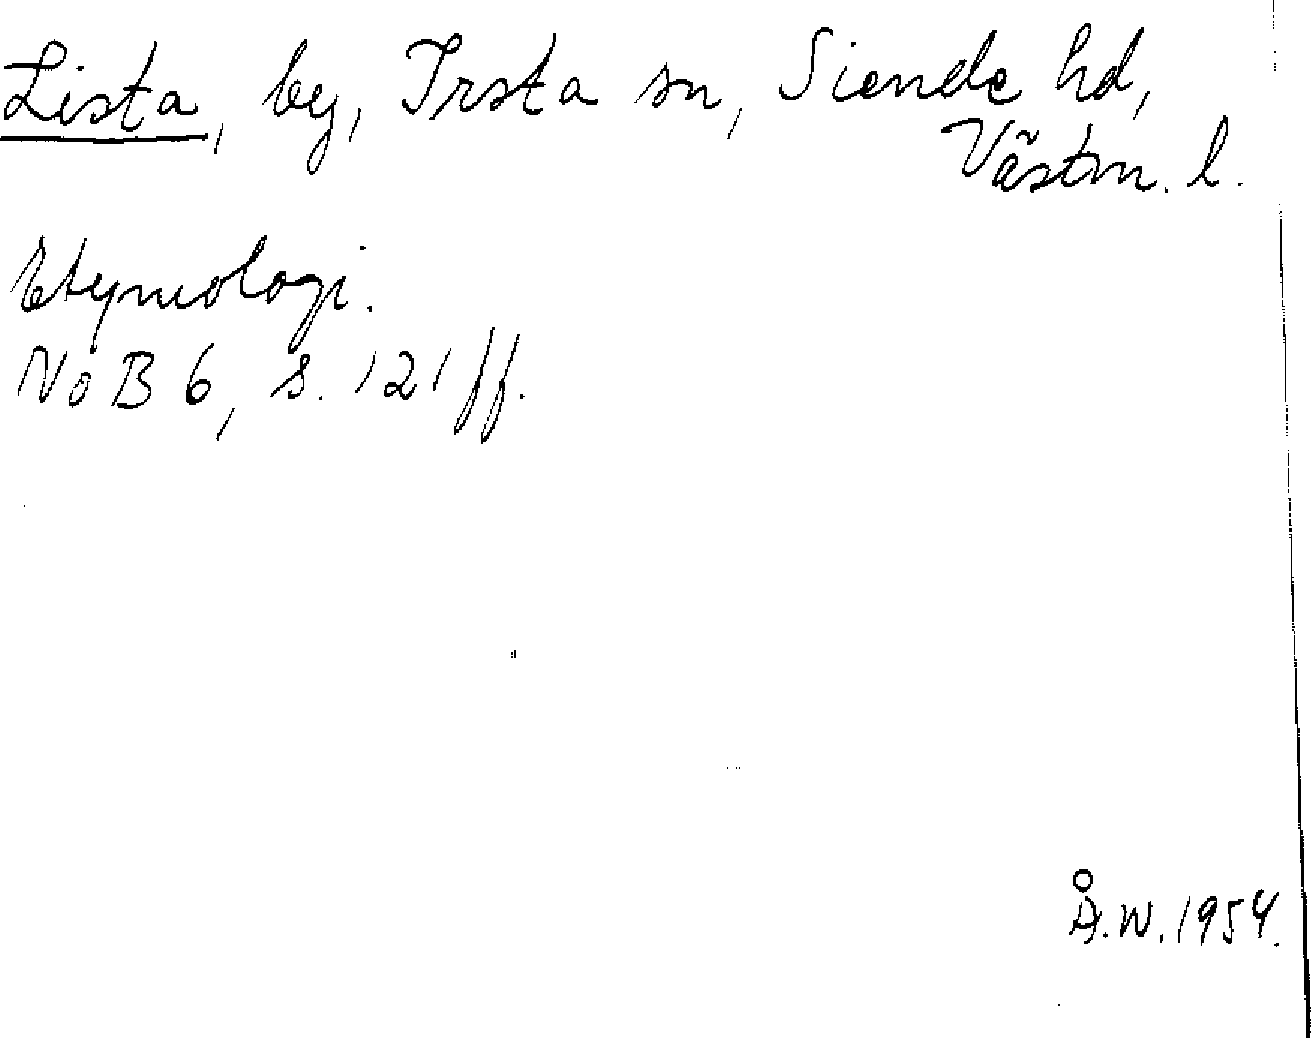 Lista, by, Irsta sn, Siende hd,
Västm. l.
Etymologi.
NoB 6, s. 121 ff.
Å.W. 1954.